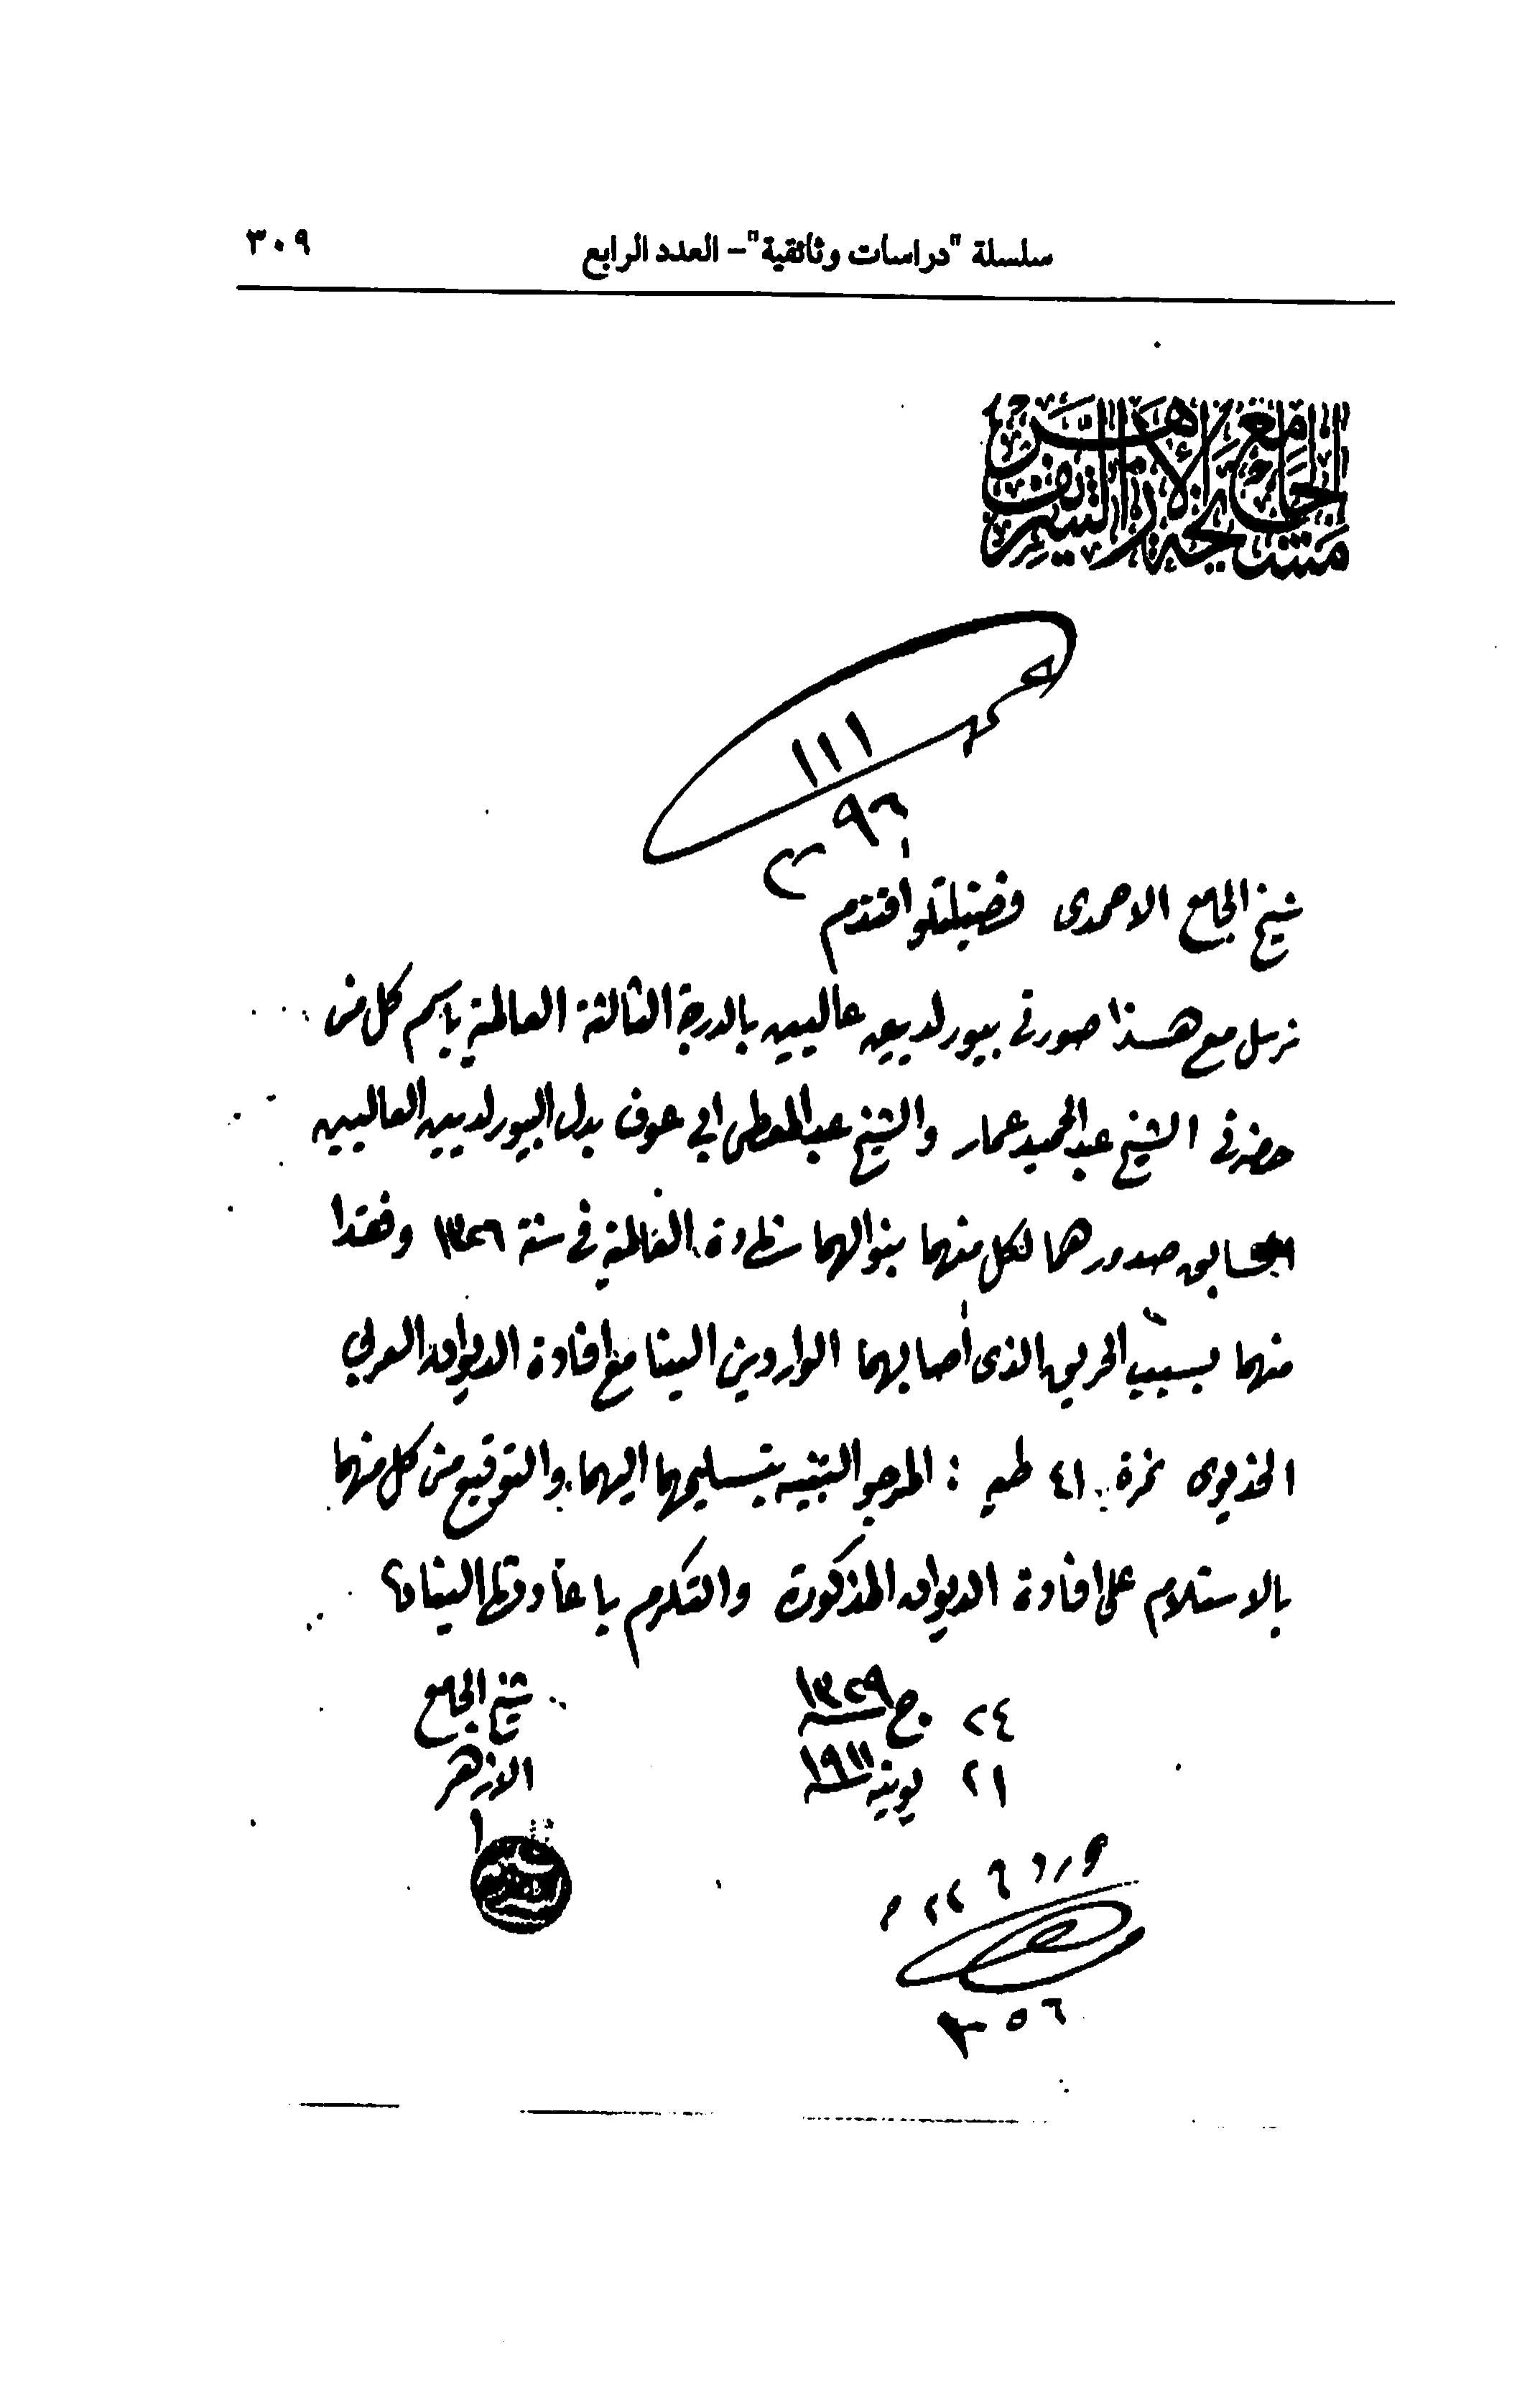 سلسلة "دراسات وثائقية" – العدد الرابع ٣٠٩
مشيخة الجامع الأزهر الشريف
١١١
٩٦
شيخ الجامع الاحمدى فضيلتلو افندم
نرسل مع هذا صورتى بيورلديين عاليين بالدرجة الثالثة العالمية باسم كل من
حضرتى الشيخ عبد الحميد عمار والشيخ عبد المعطى ابى عوف بدل البيورلديين العاليين
السابق صدورهما لكل منهما بنوالهما شهادة العالمية فى سنة ١٣٢٦ وفقدا
منهما بسبب الحريق الذى أصابهما الواردين الينا مع افادة الديوان العربى
الخديوى نمرة ٤١ طيه : المرجو التنبيه بتسليمهما اليهما والتوقيع من كل منهما
بالاستلام على افادة الديوان المذكورة والتكرم باعادتها الينا
٢٤ ج ١٣٢٩
٢١ يونيه ١٩١١
شيخ الجامع
الازهر
٣٥٦